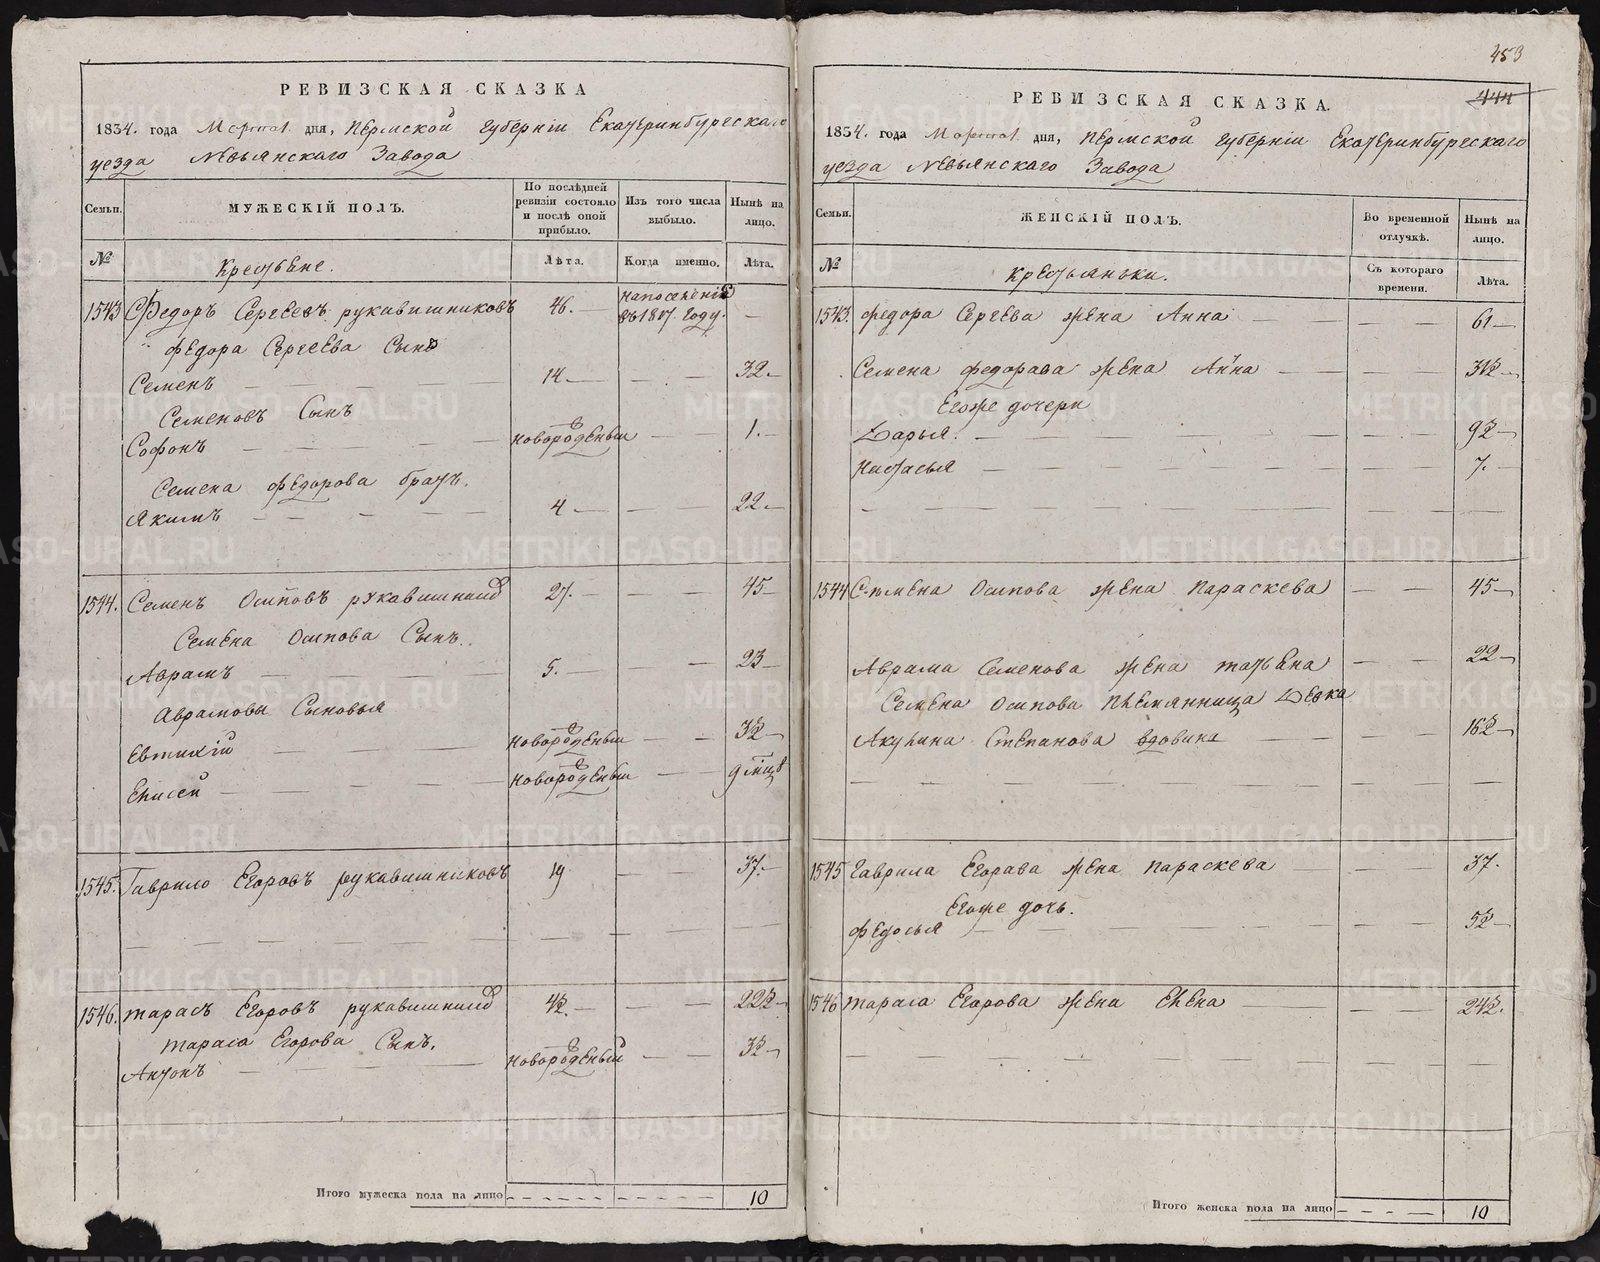 РЕВИЗСКАЯ СКАЗКА
1834. года Марта 1 дня, Пермской Губерніи Екатеринбургскаго
уезда Невьянскаго Завода
Семьи.
МУЖЕСКІЙ ПОЛЪ.
По послѣдней ревизіи состояло и послѣ оной прибыло.
Изъ того числа выбыло.
Нынѣ на лицо.
№
Крестьяне.
Лѣта.
Когда именно.
Лѣта.
1543 Федоръ Сергеевъ рукавишниковъ 46. —
въ 1817. году. —
федора Сергеева Сынъ
Семенъ — — — 14. — — — 32. —
Семеновъ Сынъ
Софонъ — — — новорожденный — — 1. —
Семена федорова братъ.
Якимъ — — — — — 4 — — — 22. —
1544. Семенъ Осиповъ рукавишник 27. — — — 45 —
Семена Осипова Сынъ.
Аврамъ — — — 5. — — — 23 —
Аврамовы Сыновья
Евтихій — — — новорожденный — — 3½ —
Елисей — — — новорожденный — — 9 мцъ
1545. Гаврило Егоровъ рукавишниковъ 19 — — 37. —
1546. тарасъ Егоровъ рукавишник 4½. — — — 22½ —
тараса Егорова Сынъ.
Антонъ — — — новорожденный — — 3½ —
Итого мужеска пола на лицо — — — — 10
453
444
РЕВИЗСКАЯ СКАЗКА.
1834. года Марта 1 дня, Пермской Губерніи Екатеринбургскаго
уезда Невьянскаго Завода
Семьи.
ЖЕНСКІЙ ПОЛЪ.
Во временной отлучкѣ.
Нынѣ на лицо.
№
Крестьянки.
Съ котораго времени.
Лѣта.
1543. федора Сергева жена Анна — — — 61 —
Семена федорава жена Анна — — — 31½ —
Егоже дочери
Дарья. — — — 9½ —
Настасья — — — 7. —
1544 Семена Осипова жена Параскева — — 45 —
Аврама Семенова жена татьена — — 22 —
Семена Осипова племянница Девка
Акулина Степанова вдовина — — 16½ —
1545 Гаврила Егорава жена параскева — — 37.
Егоже дочь.
федосья — — — 5½ —
1546 тараса Егорова жена Елена — — — 24½.
Итого женска пола на лицо — — — — 10
METRIKI.GASO-URAL.RU